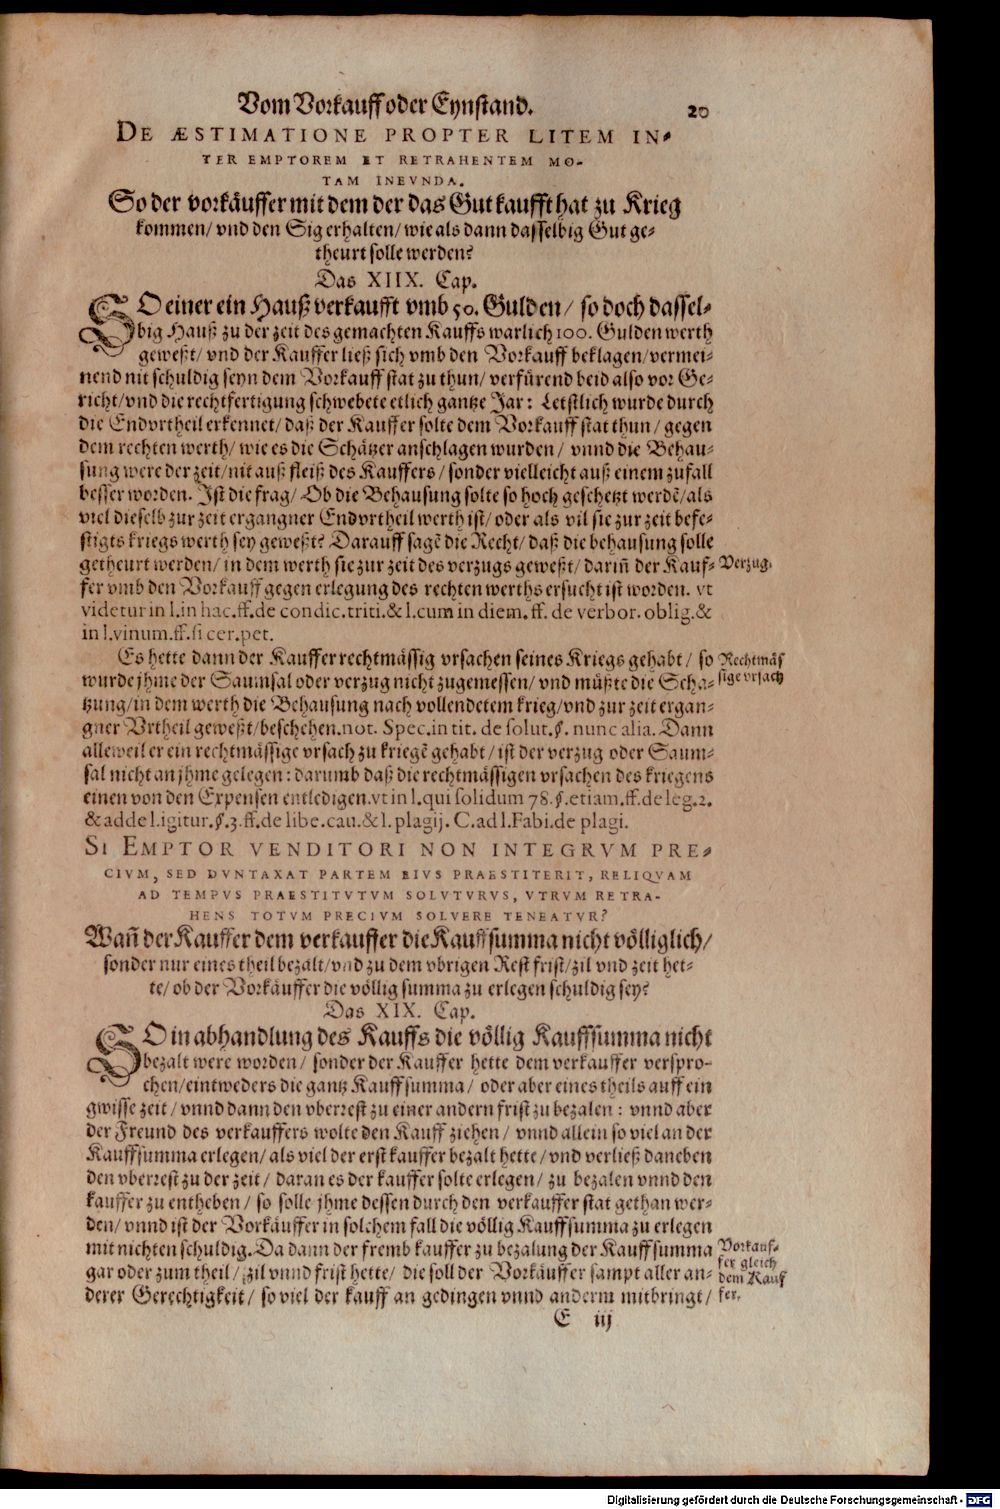 Vom Vorkauff oder Eynstand.
20
DE ÆSTIMATIONE PROPTER LITEM IN-
TER EMPTOREM ET RETRAHENTEM MO-
TAM INEVNDA.
So der vorkäuffer mit dem der das Gut kaufft hat zu Krieg
kommen/ vnd den Sig erhalten/ wie als dann dasselbig Gut ge-
theurt solle werden?
Das XIIX. Cap.
SO einer ein Hauß verkaufft vmb 50. Gulden/ so doch dassel-
big Hauß zu der zeit des gemachten Kauffs warlich 100. Gulden werth
geweßt/ vnd der Kauffer ließ sich vmb den Vorkauff beklagen/ vermei-
nend nit schuldig seyn dem Vorkauff stat zu thun/ verfürend beid also vor Ge-
richt/ vnd die rechtfertigung schwebete etlich gantze Jar: Letstlich wurde durch
die Endvrtheil erkennet/ daß der Kauffer solte dem Vorkauff stat thun/ gegen
dem rechten werth/ wie es die Schätzer anschlagen wurden/ vnnd die Behau-
sung were der zeit/ nit auß fleiß des Kauffers/ sonder vielleicht auß einem zufall
besser worden. Ist die frag/ Ob die Behausung solte so hoch geschetzt werdē/ als
viel dieselb zur zeit ergangner Endvrtheil werth ist/ oder als vil sie zur zeit befe-
stigts kriegs werth sey geweßt? Darauff sagē die Recht/ daß die behausung solle
getheurt werden/ in dem werth sie zur zeit des verzugs geweßt/ dariñ der Kauf-
Verzug.
fer vmb den Vorkauff gegen erlegung des rechten werths ersucht ist worden. vt
videtur in l. in hac. ff. de condic. triti. & l. cum in diem. ff. de verbor. oblig. &
in l. vinum. ff. si cer. pet.
Es hette dann der Kauffer rechtmässig vrsachen seines Kriegs gehabt/ so
Rechtmäs
sige vrsach
wurde jhme der Saumsal oder verzug nicht zugemessen/ vnd müßte die Scha-
tzung/ in dem werth die Behausung nach vollendetem krieg/ vnd zur zeit ergan-
gner Vrtheil geweßt/ beschehen. not. Spec. in tit. de solut. §. nunc alia. Dann
alleweil er ein rechtmässige vrsach zu kriegē gehabt/ ist der verzug oder Saum-
sal nicht an jhme gelegen: darumb daß die rechtmässigen vrsachen des kriegens
einen von den Expensen entledigen. vt in l. qui solidum 78. §. etiam. ff. de leg. 2.
& adde l. igitur. §. 3. ff. de libe. cau. & l. plagij. C. ad l. Fabi. de plagi.
SI EMPTOR VENDITORI NON INTEGRVM PRE-
CIVM, SED DVNTAXAT PARTEM EIVS PRAESTITERIT, RELIQVAM
AD TEMPVS PRAESTITVTVM SOLVTVRVS, VTRVM RETRA-
HENS TOTVM PRECIVM SOLVERE TENEATVR?
Wañ der Kauffer dem verkauffer die Kauffsumma nicht völliglich/
sonder nur eines theil bezalt/ vnd zu dem vbrigen Rest frist/ zil vnd zeit het-
te/ ob der Vorkäuffer die völlig summa zu erlegen schuldig sey?
Das XIX. Cap.
SO in abhandlung des Kauffs die völlig Kauffsumma nicht
bezalt were worden/ sonder der Kauffer hette dem verkauffer verspro-
chen/ eintweders die gantz Kauffsumma/ oder aber eines theils auff ein
gwisse zeit/ vnnd dann den vberrest zu einer andern frist zu bezalen: vnnd aber
der Freund des verkauffers wolte den Kauff ziehen/ vnnd allein so viel an der
Kauffsumma erlegen/ als viel der erst kauffer bezalt hette/ vnd verließ daneben
den vberrest zu der zeit/ daran es der kauffer solte erlegen/ zu bezalen vnnd den
kauffer zu entheben/ so solle jhme dessen durch den verkauffer stat gethan wer-
den/ vnnd ist der Vorkäuffer in solchem fall die völlig Kauffsumma zu erlegen
mit nichten schuldig. Da dann der fremb kauffer zu bezalung der Kauffsumma
gar oder zum theil/ zil vnnd frist hette/ die soll der Vorkäuffer sampt aller an-
derer Gerechtigkeit/ so viel der kauff an gedingen vnnd anderm mitbringt/
Vorkauf-
fer gleich
dem Kauf
fer.
E iij
Digitalisierung gefördert durch die Deutsche Forschungsgemeinschaft - DFG